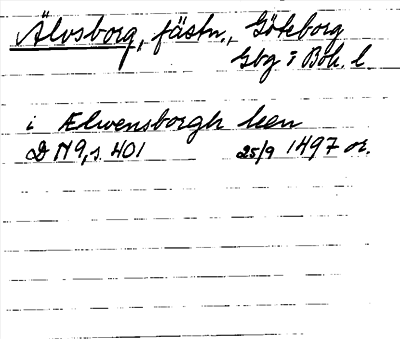 Älvsborg, fästn., Göteborg
Gbg i Boh. l
i Elwensborgh len
D N 9, s. 401 25/9 1497 or.